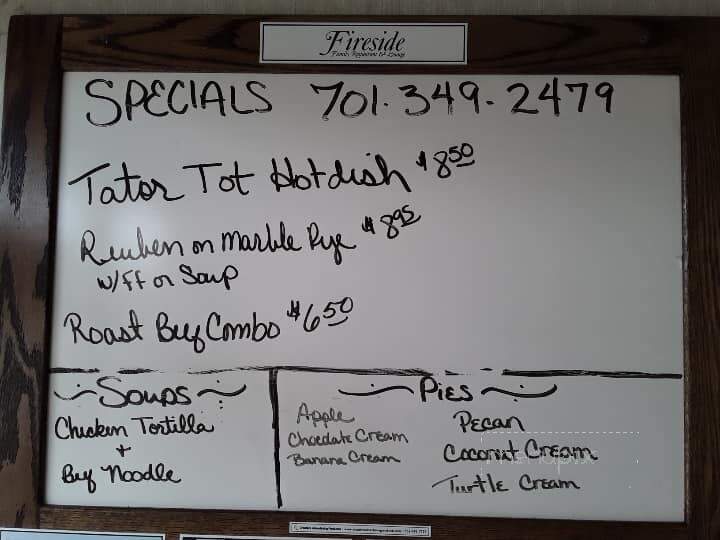 Fireside
Family Restaurant & Lounge
SPECIALS 701.349.2479
Tator Tot Hotdish $8.50
Reuben on Marble Rye $8.95
w/FF or Soup
Roast Beef Combo $6.50
Soups
Chicken Tortilla
+
Beef Noodle
Pies
Apple
Chocolate Cream
Banana Cream
Pecan
Coconut Cream
Turtle Cream